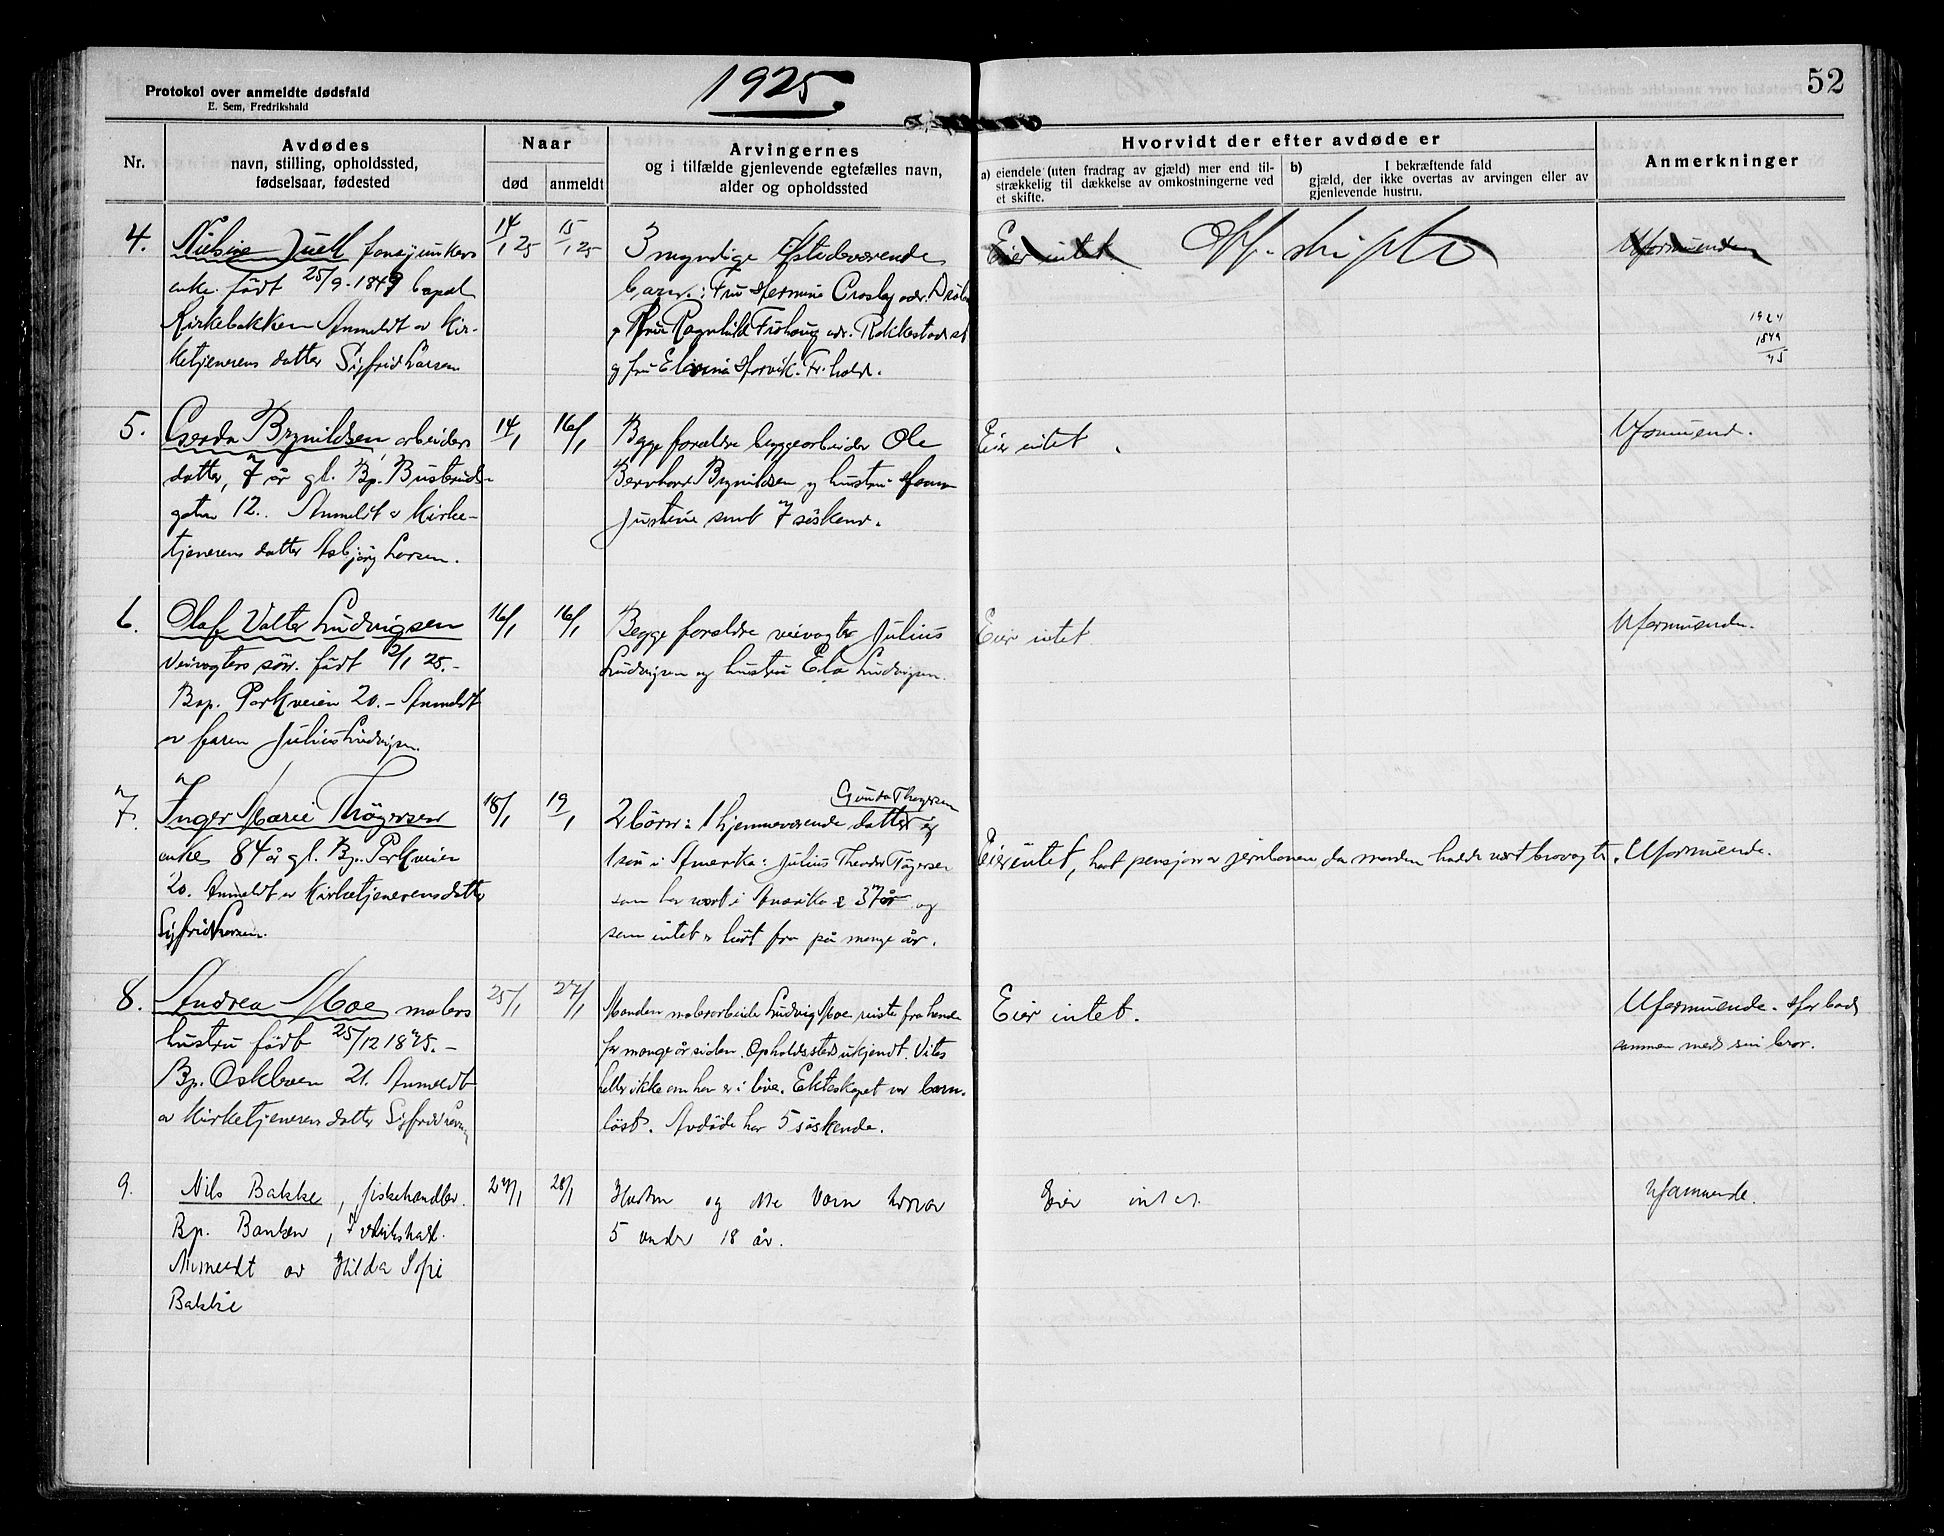 1925.
52
Protokol over anmeldte dødsfald
E. Sem, Fredrikshald
Nr.
Avdødes
navn, stilling, opholdssted,
fødselsaar, fødested
Naar
død
anmeldt
Arvingernes
og i tilfælde gjenlevende egtefælles navn,
alder og opholdssted
Hvorvidt der efter avdøde er
a) eiendele (uten fradrag av gjæld) mer end til-
strækkelig til dækkelse av omkostningerne ved
et skifte.
b) I bekræftende fald
gjæld, der ikke overtas av arvingen eller av
gjenlevende hustru.
Anmerkninger
4.
Nielsine Juell
enke. født 25/9-1849
Kirkebakken Anmeldt av Kir-
ketjenerens datter Sigfrid Larsen
14/1 25
15/1 25
3 myndige tilstedeværende
barn: Fru Hermine Crosby adr.
Fru Ragnhild Frøhaug adr. Rakkestad st
g fru Elvine Horvik. Fr.hald.
Eier intet
Off. skifte
Uformuende
1924
1849
75
5.
Gerda Brynildsen arbeiders
datter, 7 år gl. Bp. Busterud-
gaten 12. Anmeldt av Kirke-
tjenerens datter Asbjørg Larsen.
14/1
16/1
Begge foreldre byggearbeider Ole
Bernhard Brynildsen og hustru
Justine samt 7 søsken.
Eier intet
Uformuend.
6.
Olaf Valter Ludvigsen
Veivogters søn. født 2/1 25.-
Bop. Parkveien 20.- Anmeldt
av faren Julius Ludvigsen.
16/1
16/1
Begge foreldre veivogter Julius
Ludvigsen og hustru Ela Ludvigsen.
Eier intet
Uformuende.
7.
Inger Marie Thøgersen
enke 84 år gl. Bp. Parkveien
20. Anmeldt av Kirketjenerens datter
Sigfrid Larsen.
18/1
19/1
Gunda Thøgersen
2 børn: 1 hjemmeværende datter og
1 søn i Amerika: Julius Theodor Tøgersen
som har vært i Amerika i 37 år og
som intet er hørt fra på mange år.
Eier intet, hatt pensjon av jernbanen, da manden hadde vært brovagt.
Uformuende.
8.
Andrea Moe malers
hustru født 25/12 1875.-
Bp. Oskleven 21. Anmeldt
av Kirketjenerens datter Sigfrid Larsen
25/1
27/1
Manden malerarbeider Ludvig Moe reiste fra hende
for mange år siden. Opholdssted ukjendt. Vites
heller ikke om han er i live. Ekteskapet var barn-
løst. Avdøde har 5 søskende.
Eier intet.
Uformuende. Har bodd
sammen med sin bror.
9.
Nils Bakke, fiskehandler.
Bp. Banken, Fredrikshald.
Anmeldt av Hilda Sofie
Bakke
27/1
28/1
Hustru og åtte barn hvorav
5 under 18 år.
Eier intet.
Uformuende.